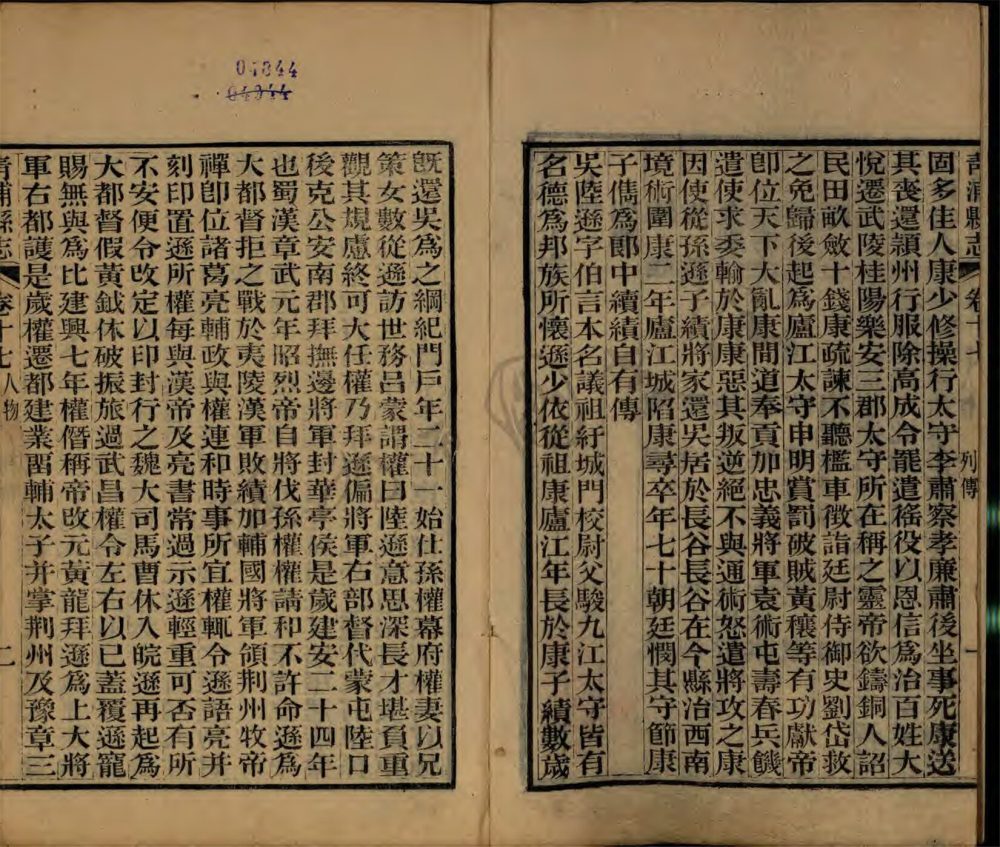 青浦縣志 卷十七 列傳 一
固多佳人康少修操行太守李肅察孝廉肅後坐事死康送
其喪還潁州行服除高成令罷遣徭役以恩信爲治百姓大
悅遷武陵桂陽樂安三郡太守所在稱之靈帝欲鑄銅人詔
民田畝斂十錢康疏諫不聽檻車徵詣廷尉侍御史劉岱救
之免歸後起爲廬江太守申明賞罰破賊黃穰等有功獻帝
卽位天下大亂康間道奉貢加忠義將軍袁術屯壽春兵饑
遣使求委輸於康康惡其叛逆絕不與通術怒遣將攻之康
因使從孫遜子績將家還吳居於長谷長谷在今縣治西南
境術圍康二年廬江城陷康尋卒年七十朝廷憫其守節康
子儁爲郞中續績自有傳
吳陸遜字伯言本名議祖紆城門校尉父駿九江太守皆有
名德爲邦族所懷遜少依從祖康廬江年長於康子績數歲
旣還吳爲之綱紀門戶年二十一始仕孫權幕府權妻以兄
策女數從遜訪世務呂蒙謂權曰陸遜意思深長才堪負重
觀其規慮終可大任權乃拜遜偏將軍右部督代蒙屯陸口
後克公安南郡拜撫邊將軍封華亭侯是歲建安二十四年
也蜀漢章武元年昭烈帝自將伐孫權權請和不許命遜爲
大都督拒之戰於夷陵漢軍敗績加輔國將軍領荆州牧帝
禪卽位諸葛亮輔政與權連和時事所宜權輒令遜語亮并
刻印置遜所權每與漢帝及亮書常過示遜輕重可否有所
不安便令改定以印封行之魏大司馬曹休入皖遜再起爲
大都督假黃鉞休破振旅過武昌權令左右以已蓋覆遜寵
賜無與爲比建興七年權僭稱帝改元黃龍拜遜爲上大將
軍右都護是歲權遷都建業畱輔太子并掌荆州及豫章三
青浦縣志 卷十七 人物 二
04844
04944